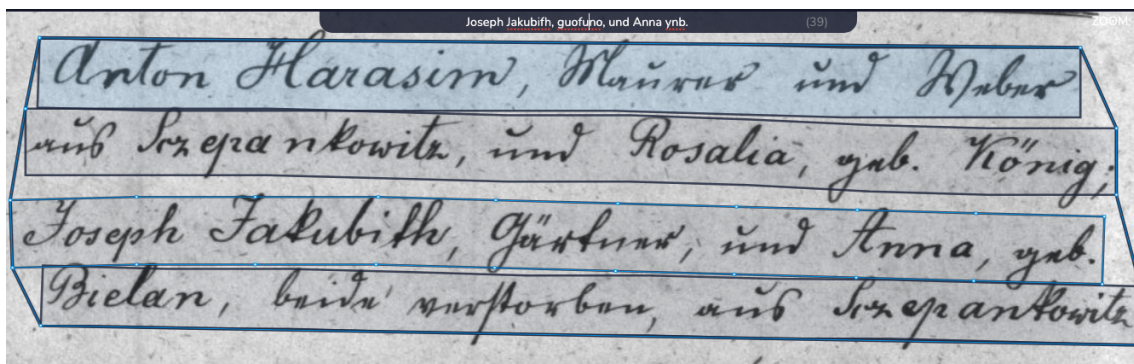 Joseph Jakubifh, guofuno, und Anna ynb. (39)
ZOOM
Anton Harasim, Maurer und Weber
aus Sczepankowitz, und Rosalia, geb. König;
Joseph Jakubith, Gärtner, und Anna, geb.
Bielan, beide verstorben, aus Sczepankowitz